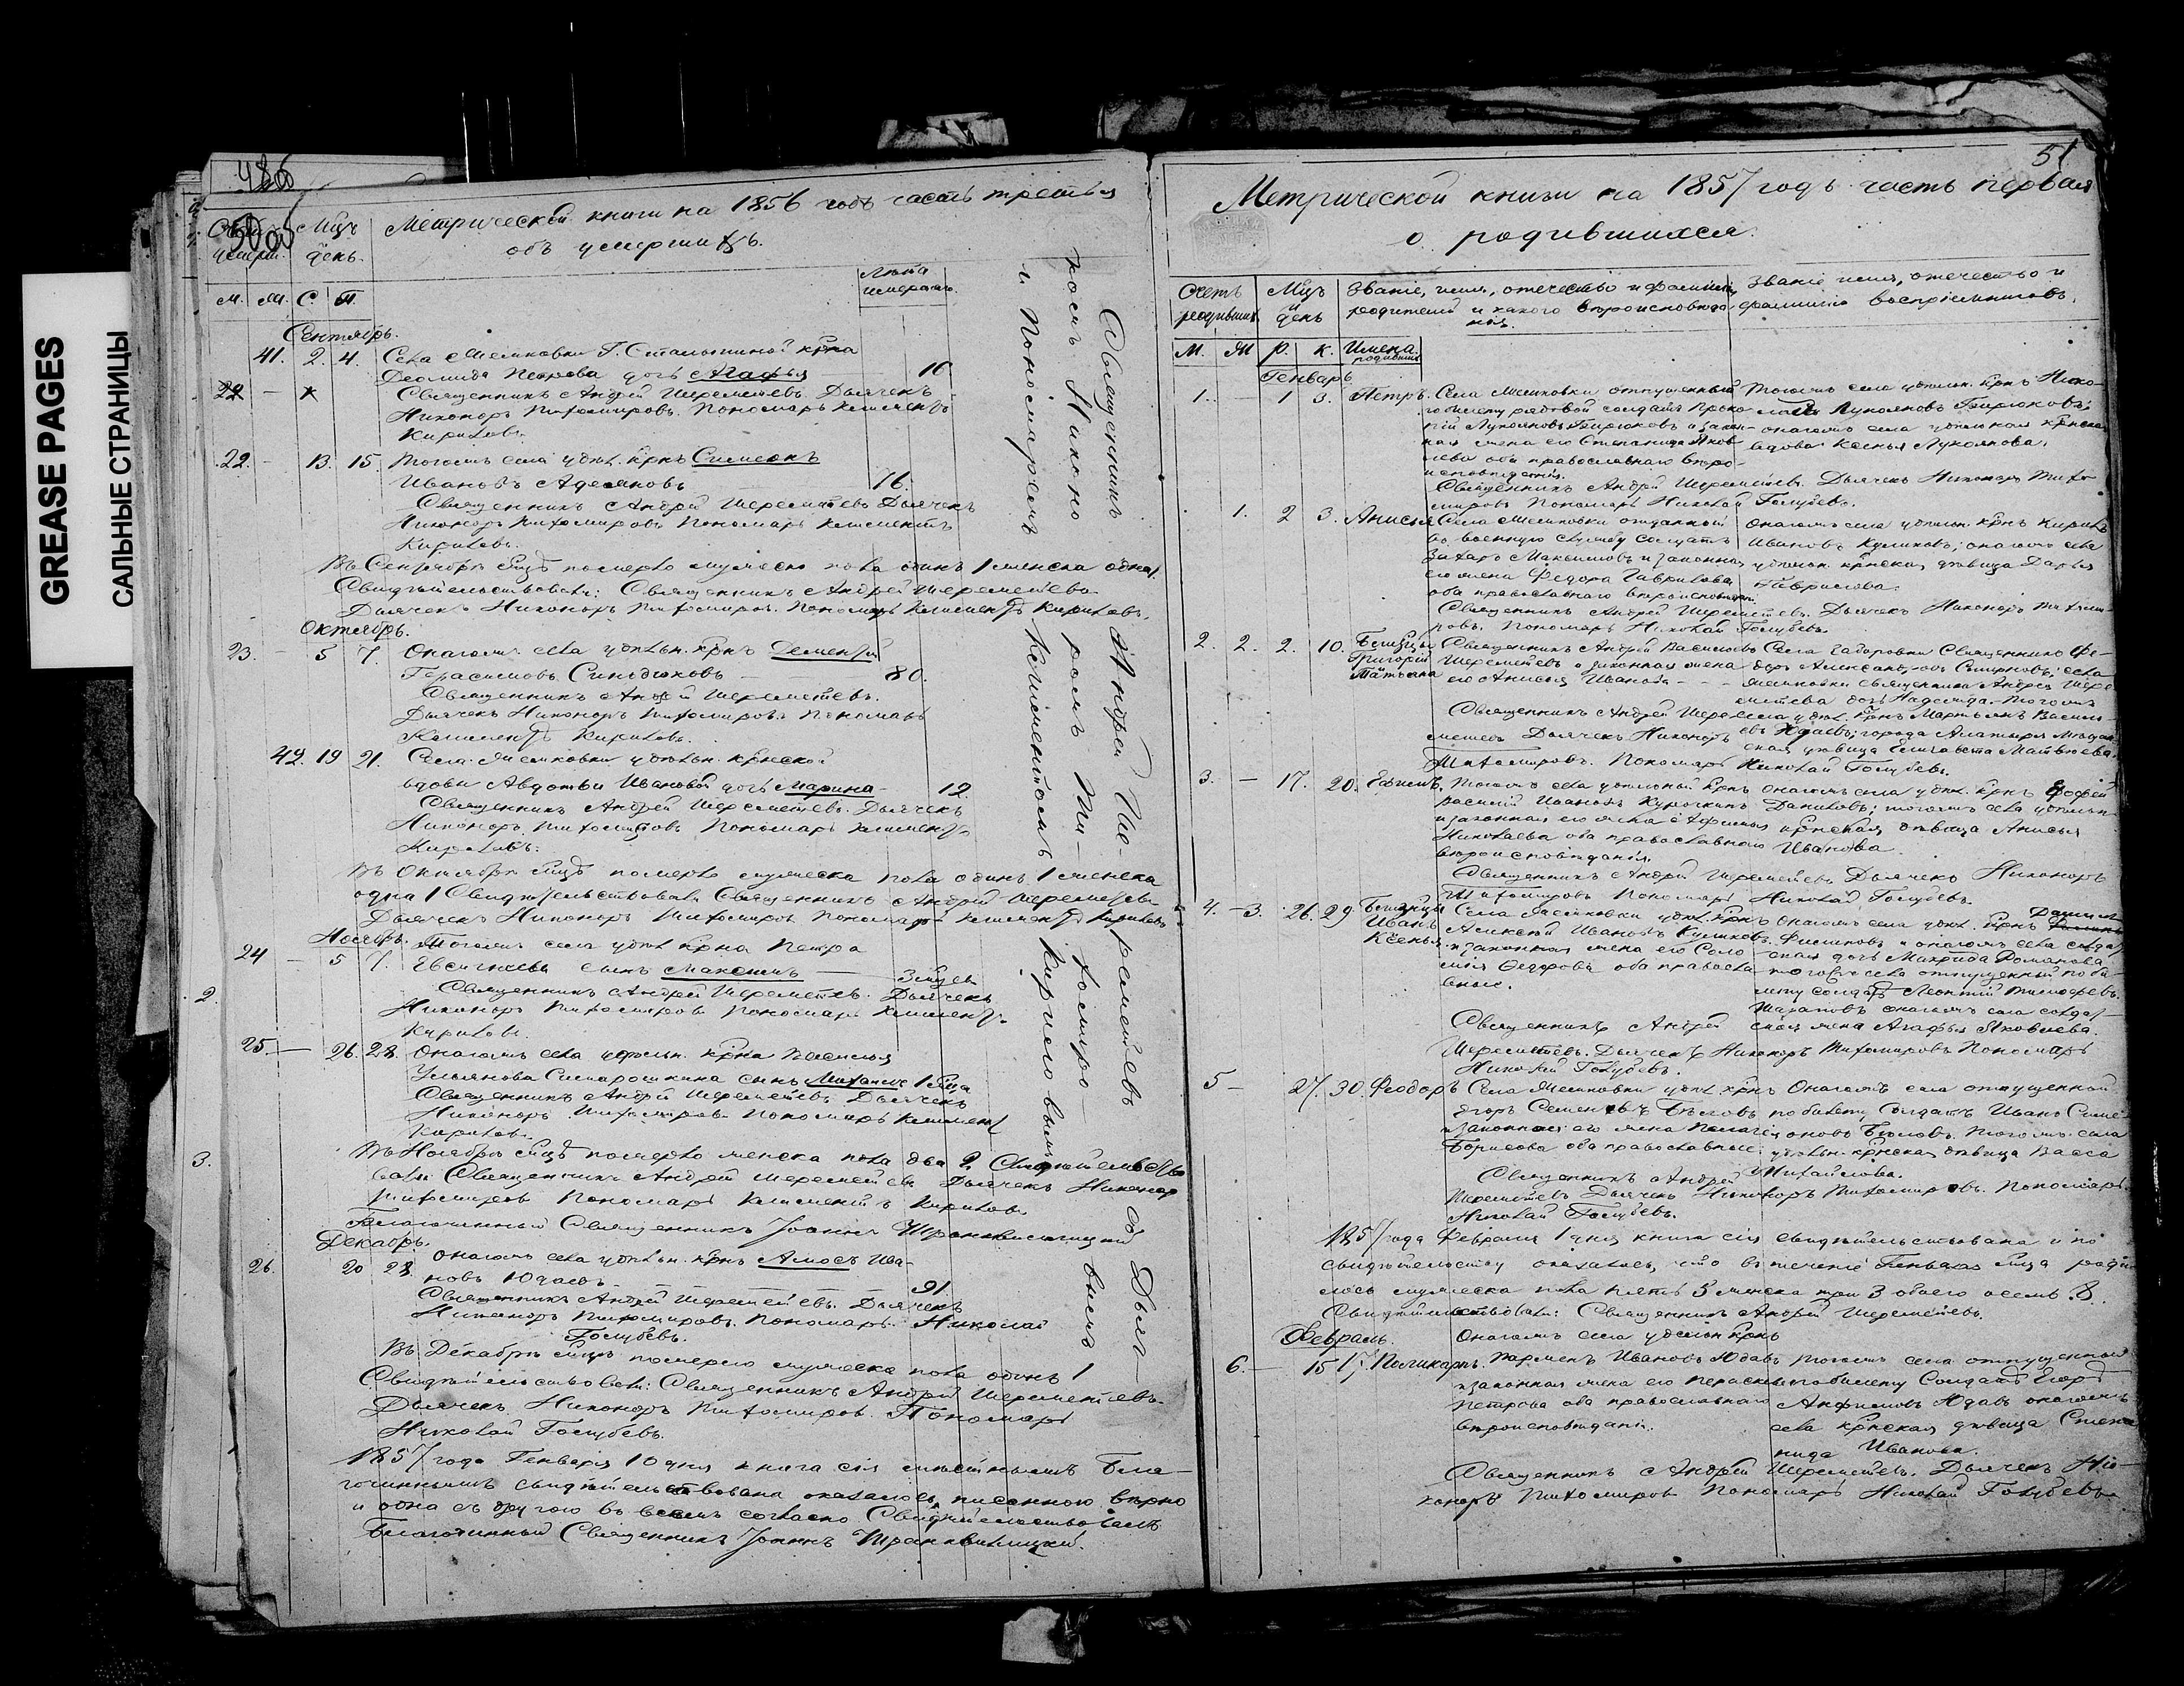 GREASE PAGES
САЛЬНЫЕ СТРАНИЦЫ
Метрической книги на 1856 годъ часть третья
объ умершихъ.
Мцъ
день.
Лѣта
умершихъ.
м. ж. С. П.
Сентябрь.
41. 2. 4. Села
Петрова дочь Агафья 10
Священникъ Андрей Шереметевъ Дьячекъ
Никоноръ Тихомировъ. Пономарь Климентъ
Кириловъ.
22. — 13. 15. Тогожъ села удѣл. крнъ Симеонъ
Ивановъ 16.
Священникъ Андрей Шереметевъ Дьячекъ
Никоноръ Тихомировъ Пономарь Климентъ
Кириловъ.
Въ Сентябрѣ мцѣ померло мужеска пола одинъ 1 женска одна 1.
Свидѣтельствовали: Священникъ Андрей Шереметевъ
Дьячекъ Никоноръ Тихомировъ. Пономарь Климентъ Кириловъ.
Октябрь.
23. — 5 7. Онагожъ села удѣльн. крнъ Дементій
Герасимовъ — 80.
Священникъ Андрей Шереметевъ.
Дьячекъ Никоноръ Тихомировъ Пономарь
Климентъ Кириловъ.
42. 19 21. Села удѣльн. крнской
вдовы Авдотьи Ивановой дочь Марина — 12.
Священникъ Андрей Шереметевъ. Дьячекъ
Никоноръ Тихомировъ Пономарь Климентъ
Кириловъ.
Въ Октябрѣ мцѣ померло мужеска пола одинъ 1 женска
одна 1 Свидѣтельствовали Священникъ Андрей Шереметевъ
Дьячекъ Никоноръ Тихомировъ Пономарь Климентъ Кириловъ
Ноябрь.
24 — 5 7. Тогожъ села удѣл крна Петра
Евсигнеева сынъ Максимъ —
Священникъ Андрей Шереметевъ. Дьячекъ
Никоноръ Тихомировъ Пономарь Климентъ
Кириловъ.
25. — 26. 28. Онагожъ села удѣльн. крна Василья
Ульянова сынъ Михаилъ
Священникъ Андрей Шереметевъ Дьячекъ
Никоноръ Тихомировъ Пономарь Климентъ
Кириловъ.
Въ Ноябрѣ мцѣ померло женска пола два 2.
Священникъ Андрей Шереметевъ Дьячекъ Никоноръ
Тихомировъ Пономарь Климентій Кириловъ
Благочинный Священникъ Іоаннъ Транквилицкій
Декабрь.
26. 20 22. Онагожъ села удѣльн. крнъ Амосъ Ива-
новъ Юдаевъ — 91.
Священникъ Андрей Шереметевъ. Дьячекъ
Никоноръ Тихомировъ. Пономарь Николай
Голубевъ.
Въ Декабрѣ мцѣ померло мужеска пола одинъ 1
Свидѣтельствовали: Священникъ Андрей Шереметевъ
Дьячекъ Никоноръ Тихомировъ. Пономарь
Николай Голубевъ.
1857 года Генваря 10 дня книга сія мѣстнымъ Бла-
гочиннымъ свидѣтельствована оказалось писанною вѣрно
и одна съ другою во всемъ согласно Свидѣтельствовалъ
Благочинный Священникъ Іоаннъ Транквилицкій.
Священникъ Андрей Шереметевъ съ Дьяч-
комъ Никоноромъ Тихомировымъ
и Пономаремъ Климентомъ Кириловымъ
51
Метрической книги на 1857 годъ часть первая
о родившихся.
Счетъ родившихся
Мцъ и день
Званіе, имя, отечество и фамилія
родителей и какого вѣроисповѣда-
нія.
Званіе имя, отечество и
фамилія воспріемниковъ.
М. Ж Р. К. Имена родившихся
Генварь
1. — 1 3. Петръ. Села отпущенный
по билету рядовой солдатъ Проко-
пій Лукояновъ Бирюковъ и закон-
ная жена его Степанида Яков-
лева оба православнаго вѣро-
исповѣданія.
Тогожъ села удѣльн. крнъ Нико-
лай Лукояновъ Бирюковъ;
онагожъ села удѣльная крнская
вдова Ксенья Лукоянова.
Священникъ Андрей Шереметевъ. Дьячекъ Никоноръ Тихо-
мировъ Пономарь Николай Голубевъ.
1. 2 3. Анисья Села отданный
въ военную службу солдатъ
Захаръ Максимовъ и законная
его жена Федора Гаврилова
оба православнаго вѣроисповѣдан.
Онагожъ села удѣльн. крнъ Кирилъ
Ивановъ Куликовъ; онагожъ села
удѣльн. крнская дѣвица Дарья
Гаврилова.
Священникъ Андрей Шереметевъ. Дьячекъ Никоноръ Тихоми-
ровъ. Пономарь Николай Голубевъ.
2. 2. 2. 10. Близнецы Григорій Татьяна
Священникъ Андрей Васильевъ
Шереметевъ и законная жена
его Анисья Иванова - - -
Села Священникъ Фе-
доръ Александровъ Смирновъ; села
священника Андрея Шере-
метева дочь Надежда. Тогожъ
села удѣл. крнъ Мартынъ Василь-
евъ Юдаевъ; города Алатыря Мѣщан-
ская дѣвица Елизавета Матвѣева.
Священникъ Андрей Шере-
метевъ Дьячекъ Никоноръ
Тихомировъ. Пономарь Николай Голубевъ.
3. — 17. 20. Ефимъ. Тогожъ села удѣльный крнъ
Ивановъ Курочкинъ
и законная его жена Афимья
Николаева оба православнаго
вѣроисповѣданія.
Онагожъ села удѣл. крнъ
Даниловъ; тогожъ села удѣльн.
крнская дѣвица Анисья
Иванова
Священникъ Андрей Шереметевъ Дьячекъ Никоноръ
Тихомировъ Пономарь Николай Голубевъ.
4. — 3. 26. 29. Близнецы Иванъ Ксенья
Села удѣл. крнъ
Алексѣй Ивановъ Куликовъ
и законная жена его Соло-
мія Федорова оба правосла-
вные.
Онагожъ села удѣл. крнъ
Филиповъ и онагожъ села солдат-
ская дочь Романова
тогожъ села отпущенный по би-
лету солдатъ Леонтій Тимофеевъ
онагожъ села солдат-
ская жена Агафья Яковлева.
Священникъ Андрей
Шереметевъ. Дьячекъ Никоноръ Тихомировъ Пономарь
Николай Голубевъ.
5 — 27. 30. Феодоръ Села удѣл. крнъ
Егоръ Семеновъ Бѣловъ
и законная его жена Пелагея
Борисова оба православные
Онагожъ села отпущенной
по билету Солдатъ Иванъ Симе-
оновъ Бѣловъ. Тогожъ села
удѣльн. крнская дѣвица Васса
Михайлова.
Священникъ Андрей
Шереметевъ Дьячекъ Никоноръ Тихомировъ. Пономарь
Николай Голубевъ.
1857 года Февраля 1 дня книга сія свидѣтельствована и по
свидѣтельству оказалось, что въ теченіе Генваря мца роди-
лось мужеска пола пять 5 женска три 3 обоего осемь 8.
Свидѣтельствовали: Священникъ Андрей Шереметевъ.
Февраль.
6. — 15 17. Поликарпъ. Онагожъ села удѣльн крнъ
Парменъ Ивановъ Юдавъ
и законная жена его
Петрова оба православнаго
вѣроисповѣданія.
Тогожъ села отпущенный
по билету Солдатъ Егоръ
Анфимовъ Юдавъ онагожъ
села крнская дѣвица Степа-
нида Иванова.
Священникъ Андрей Шереметевъ. Дьячекъ Ни-
каноръ Тихомировъ Пономарь Николай Голубевъ